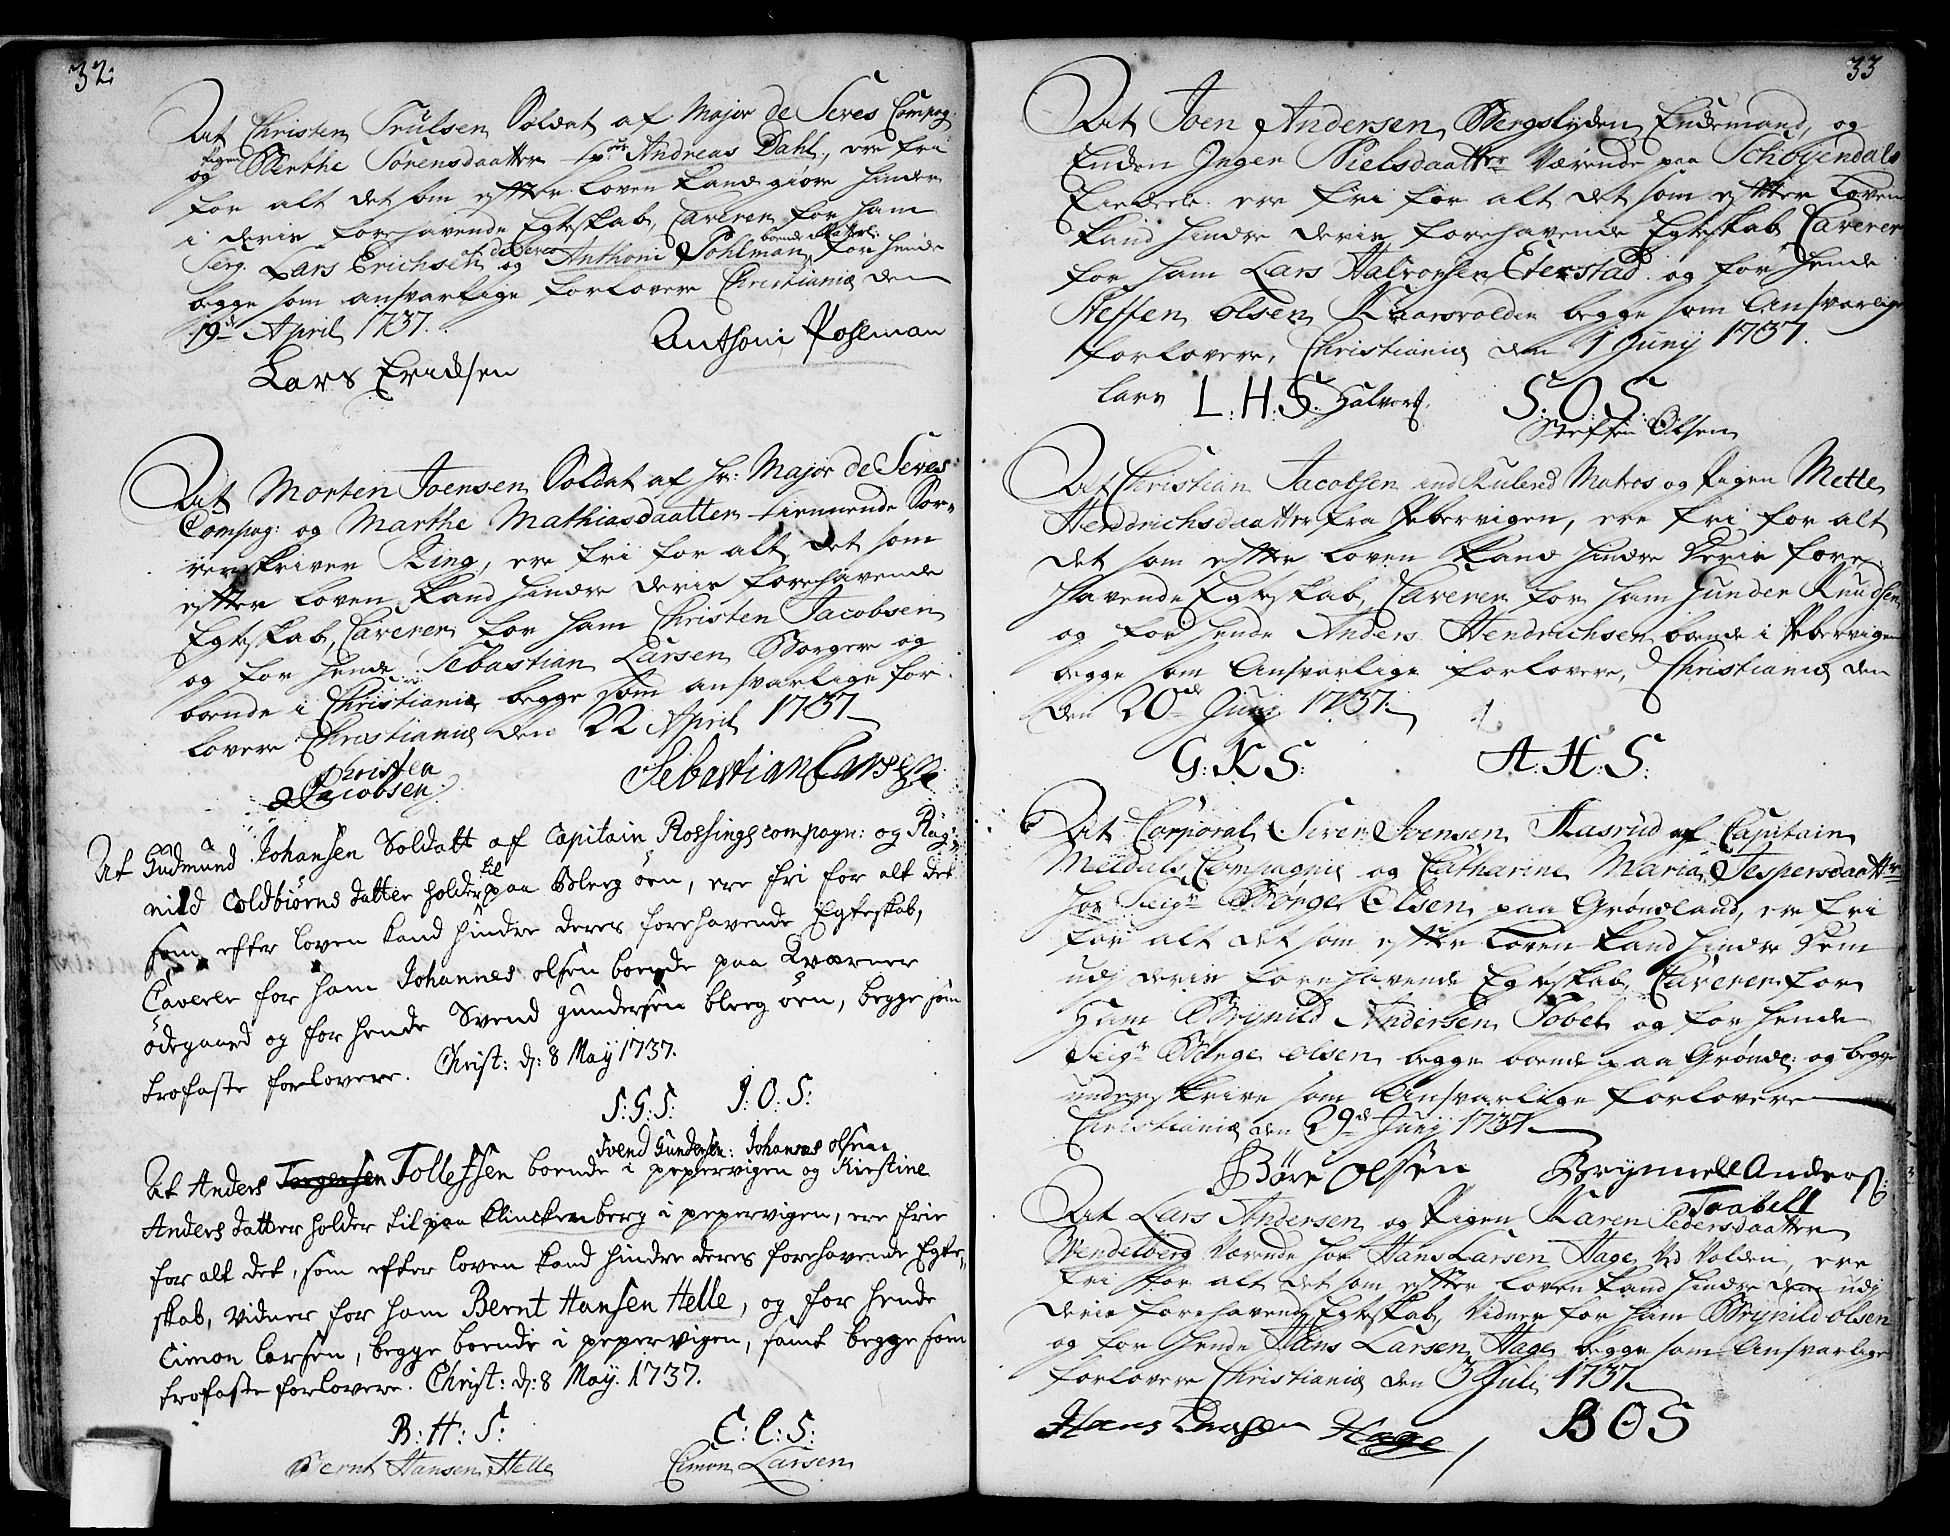 32:
At Christen Trulsen Soldat af Major de Seres Compag:
og Pigen Berthe Sørensdaatter Andreas Dahl, ere fri
for alt det som efter loven kand giøre hinder
i deris forehavende Egteskab, Caverer for ham
Serg. Lars Erichsen de Seres og Anthoni Pohlman, boende for hende
begge som ansvarlige forlovere Christiania den
19de April 1737.
Lars Eridsen
Anthoni Pohlman
At Morten Joensen Soldat af Hr: Major de Seres
Compag: og Marthe Mathiasdaatter tiennende Sor-
renskriver Ring, ere fri for alt det som
efter loven kand hindre deris forehavende
Egteskab, Caverer for ham Christen Jacobsen
og for hende Sebastian Larsen Borgere og
boende i Christiania begge som ansvarlige for-
lovere Christiania den 22 April 1737
Christen
Jacobsen
Sebastian Larsen
At Gudmund Johansen Soldatt af Capitain Rossings compagn: og Rag-
nild Coldbiørns datter holder til paa Bleeg øen, ere fri for alt det
som efter loven kand hindre deres forehavende Egteskab,
Caverer for ham Johannes olsen boende paa Kværner
ødegaard og for hende Svend gundersen bleeg øen, begge som
trofaste forlovere. Christ: d: 8 May 1737.
S: G: S: J: O: S:
Svend Gundersen: Johannes olsen
At Anders Torgersen Tollefsen boende i pepervigen og Kirstine
Anders datter holder til paa Klinckenberg i pepervigen, ere frie
for alt det, som efter loven kand hindre deres forehavende Egte-
skab, vidner for ham Bernt Hansen Helle, og for hende
Cimon larsen, begge boende i pepervigen, samt begge som
trofaste forlovere. Christ: d: 8 May. 1737.
B: H: S: C: L: S:
Bernt Hansen Helle Cimon Larsen
33
At Joen Andersen Bergslyden Enckemand, og
Encken Inger Nielsdaatter Værende paa Schøyendals
ere fri for alt det som efter Loven
kand hindre deris forehavende Egteskab, Caverer
for ham Lars Halvorsen Eterstad og for hende
Steffen olsen Kaarsvolden begge som Ansvarlige
forlovere, Christiania den 1 Junij 1737.
Lars L: H: S: Halvors: S: O: S:
Steffen Olsen
At Christian Jacobsen indRulered Matros og Pigen Mette
Hendrichsdaatter fra Pebervigen, ere fri for alt
det som efter loven kand hindre deris fore-
havende Egteskab, Caverer for ham Gunder Knudsen,
og for hende Anders Hendrichsen boende i Pebervigen
begge som Ansvarlige forlovere, Christiania den
den 20de Junij 1737.
G: K S: A: H: S:
At Corporal Seren Svensen Aasrud af Capitain
Meldals Compagnie og Catharine Maria Jespersdaatter
hos Seigr Børge Olsen paa Grønland, ere fri
for alt det som efter Loven kand hindre dem
udj deris forehavende Egteskab, Caverer for
ham Brynild Andersen Tobel og for hende
Seigr Børge olsen begge boende paa Grønl: og begge
underskrive som Ansvarlige forlovere
Christiania den 29de Junij 1737
Børe Olsen Brynnell Anders:
Taabell
At Lars Andersen og Pigen Karen Pedersdaatter
Wendelborg Værende hos Hans Larsen Hage ved Volden, ere
fri for alt det som efter loven kand hindre dem udj
deris forehavende Egteskab, Vidner for ham Brynild olsen
og for hende Hans Larsen Hage begge som Ansvarlige
forlovere Christiania den 3 Juli 1737
Hans Larsen Hage B O S